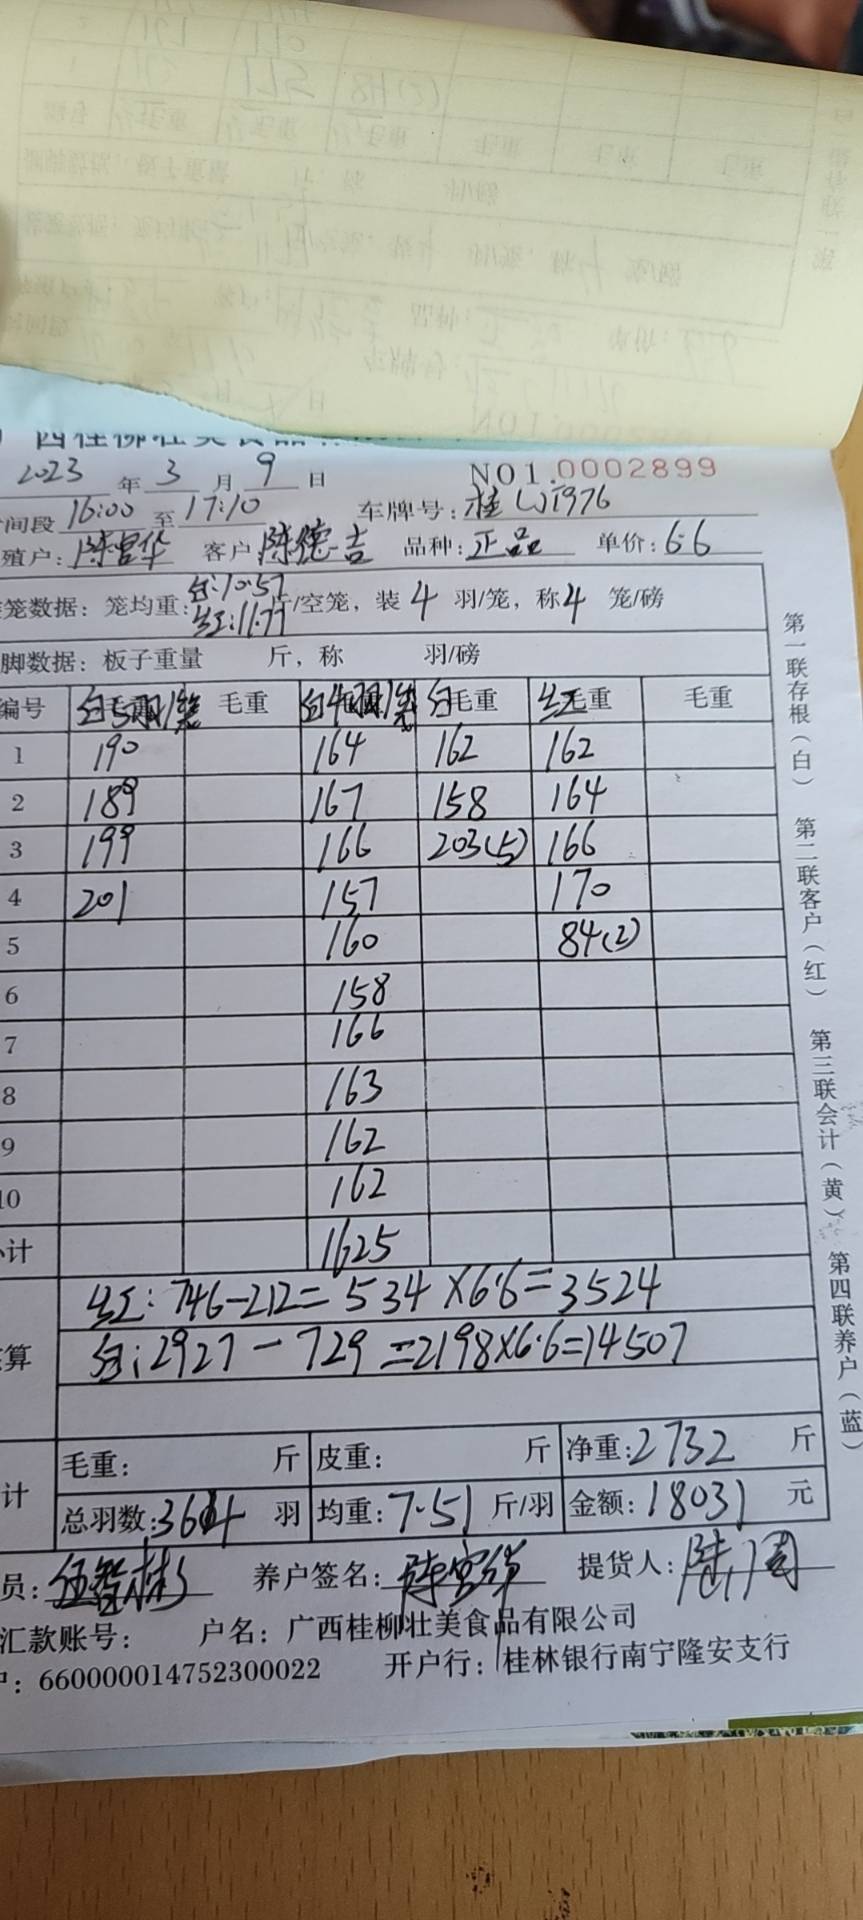 西桂柳壮美食品
2023 年 3 月 9 日 NO1.0002899
间段 16:00 至 17:10 车牌号:桂
殖户: 客户 陈德吉 品种:正品 单价:6.6
笼数据:笼均重:白:10.57 红:11.77 斤/空笼,装 4 羽/笼,称 4 笼/磅
脚数据:板子重量 斤,称 羽/磅
编号 白毛5羽/笼 毛重 白4羽/笼 白毛重 红毛重 毛重
1 190 164 162 162
2 189 167 158 164
3 199 166 203(5) 166
4 201 157 170
5 160 84(2)
6 158
7 166
8 163
9 162
10 162
计 1625
红:746-212=534×6.6=3524
算 白:2927-729=2198×6.6=14507
计 毛重: 斤 皮重: 斤 净重:2732 斤
总羽数:364 羽 均重:7.51 斤/羽 金额:18031 元
员:伍智彬 养户签名: 提货人:
汇款账号: 户名:广西桂柳壮美食品有限公司
户:660000014752300022 开户行:桂林银行南宁隆安支行
第一联存根(白) 第二联客户(红) 第三联会计(黄) 第四联养户(蓝)